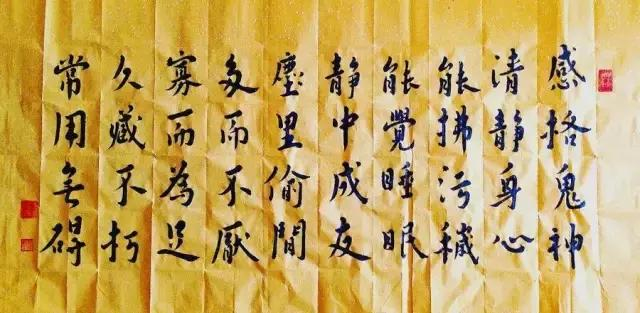 感格鬼神
清静身心
能拂污穢
能覺睡眠
静中成友
塵里偷間
多而不厭
寡而為足
久藏不朽
常用無碍